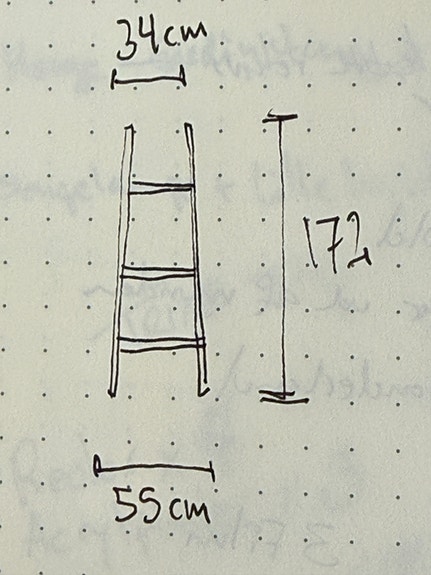 34cm
172
55cm